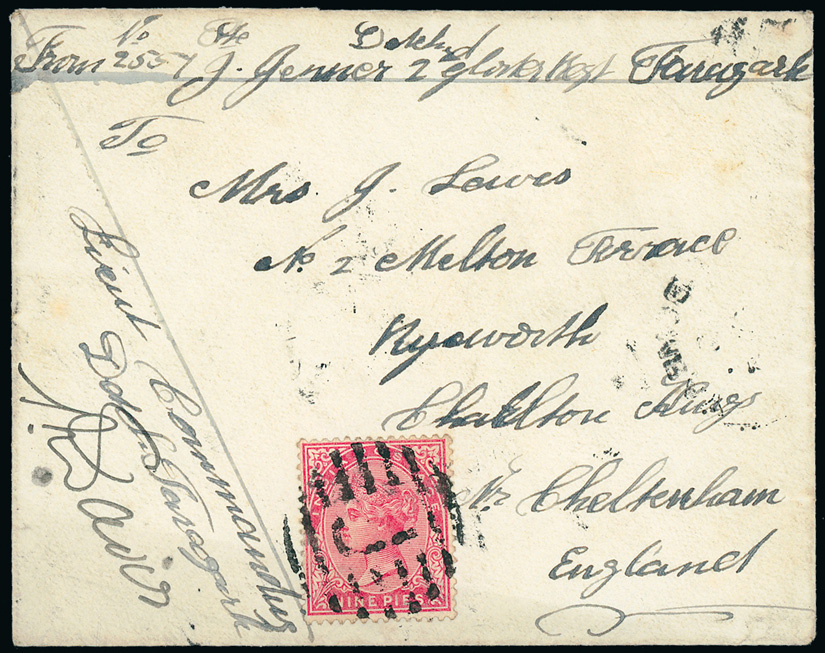 No Pte Detchd
From 2557 J. Jenner 2 Glosters Regt Taragark
To
Mrs. J. Lewis
No. 2 Melton Terrace
Ryeworth
Charlton Kings
Nr Cheltenham
England
Lieut Commanding
Taragark
NINE PIES